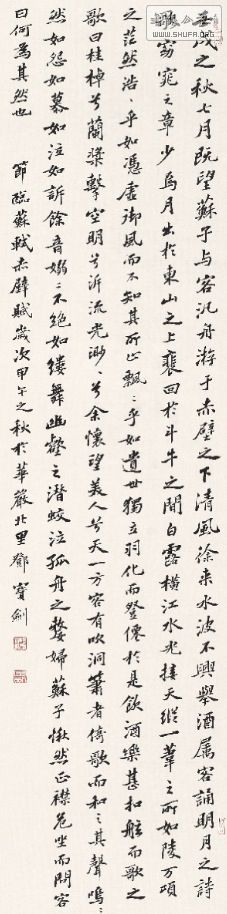 壬戌之秋七月既望蘇子与客汎舟游于赤壁之下清風徐来水波不興舉酒屬客誦明月之詩
歌窈窕之章少焉月出於東山之上裴回於斗牛之間白露橫江水光接天縱一葦之所如陵万頃
之茫然浩〻乎如憑虛御風而不知其所止飄〻乎如遺世獨立羽化而登僊於是飲酒樂甚扣舷而歌之
歌曰桂棹兮蘭槳擊空明兮泝流光渺〻兮余懷望美人兮天一方客有吹洞簫者倚歌而和之其聲嗚〻
然如怨如慕如泣如訴餘音嫋〻不絕如縷舞幽壑之潛蛟泣孤舟之嫠婦蘇子愀然正襟危坐而問客
曰何為其然也 節臨蘇軾赤壁賦歲次甲午之秋於華嚴北里鄧寶劍
WWW.SHUFA.ORG